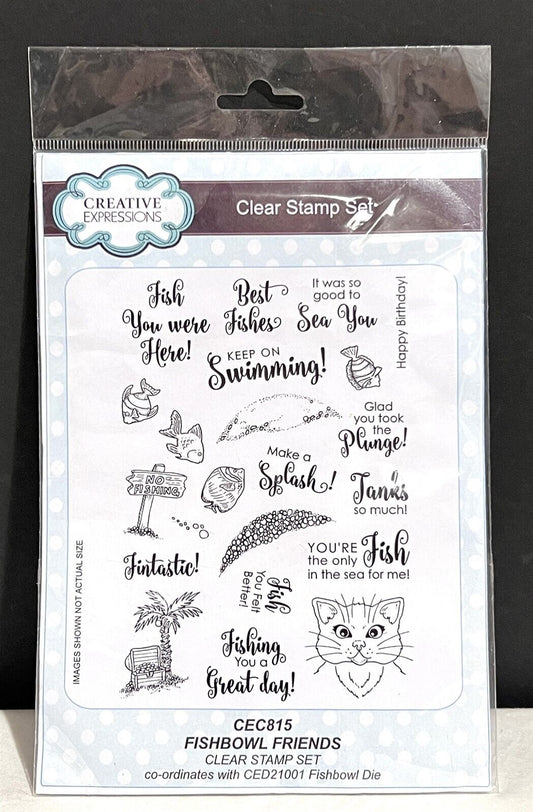 CREATIVE
EXPRESSIONS
Clear Stamp Set
Fish
You were
Here!
Best
Fishes
It was so
good to
Sea You
Happy Birthday!
KEEP ON
Swimming!
Glad
you took
the
Plunge!
Make a
Splash!
NO
FISHING
Tanks
so much!
Fintastic!
YOU'RE
the only Fish
in the sea for me!
Fish
You Felt
Better!
Fishing
You a
Great day!
IMAGES SHOWN NOT ACTUAL SIZE
CEC815
FISHBOWL FRIENDS
CLEAR STAMP SET
co-ordinates with CED21001 Fishbowl Die